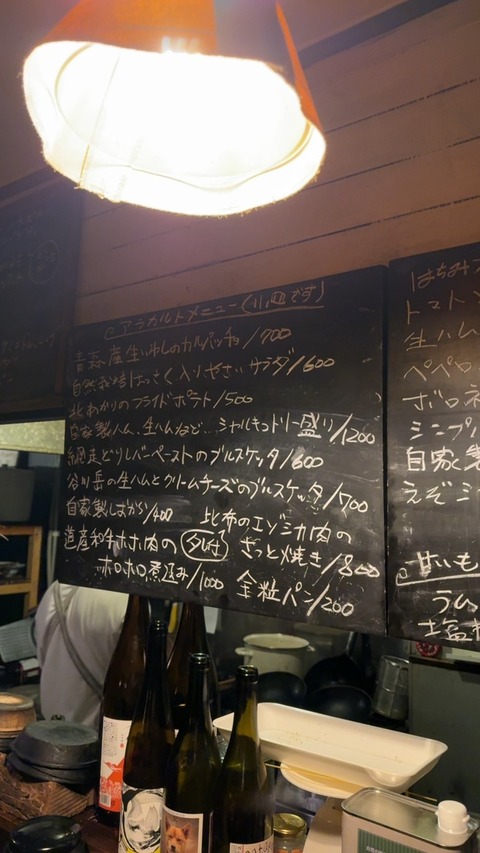 アラカルトメニュー(小皿です)
青森産生いわしのカルパッチョ/700
自然栽培はっさく入りやさいサラダ/600
北あかりのフライドポテト/500
自家製ハム、生ハムなど… シャルキュトリー盛り/1200
網走どりレバーペーストのブルスケッタ/600
谷川岳の生ハムとクリームチーズのブルスケッタ/700
自家製しおから/400
比布のエゾシカ肉の
さっと焼き/800
道産和牛ホホ肉の
ホロホロ煮込み/1000
全粒パン/200
はちみつ
トマト
生ハム
ペペロ
ボロネ
シンプル
自家製
えぞシ
甘いも
ラム
塩